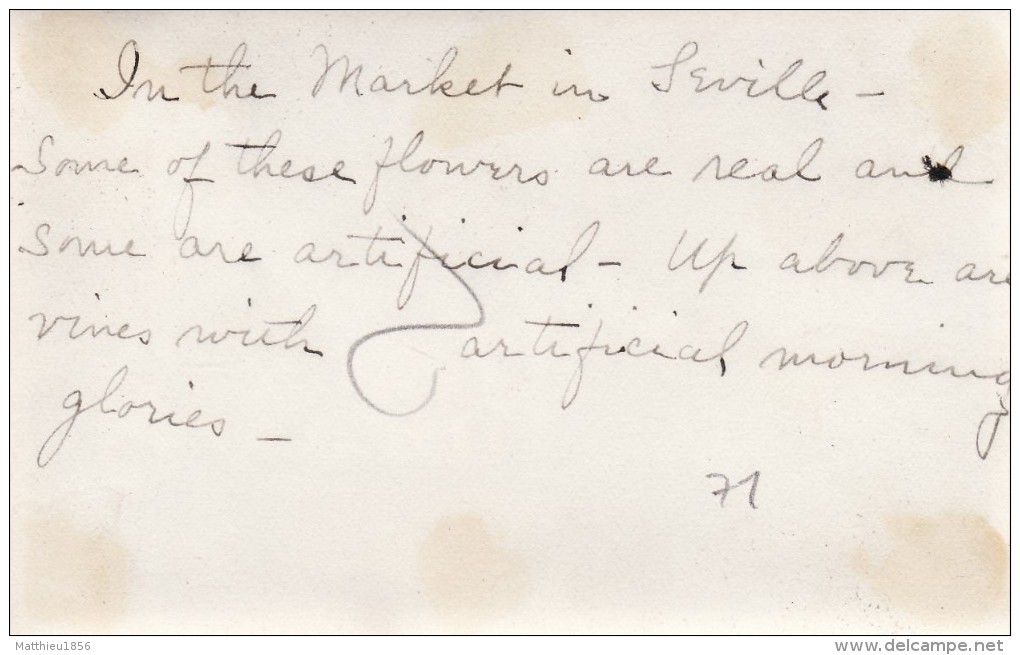 In the Market in Seville –
Some of these flowers are real and
some are artificial – Up above are
vines with artificial morning
glories –
71
Matthieu1856
www.delcampe.net